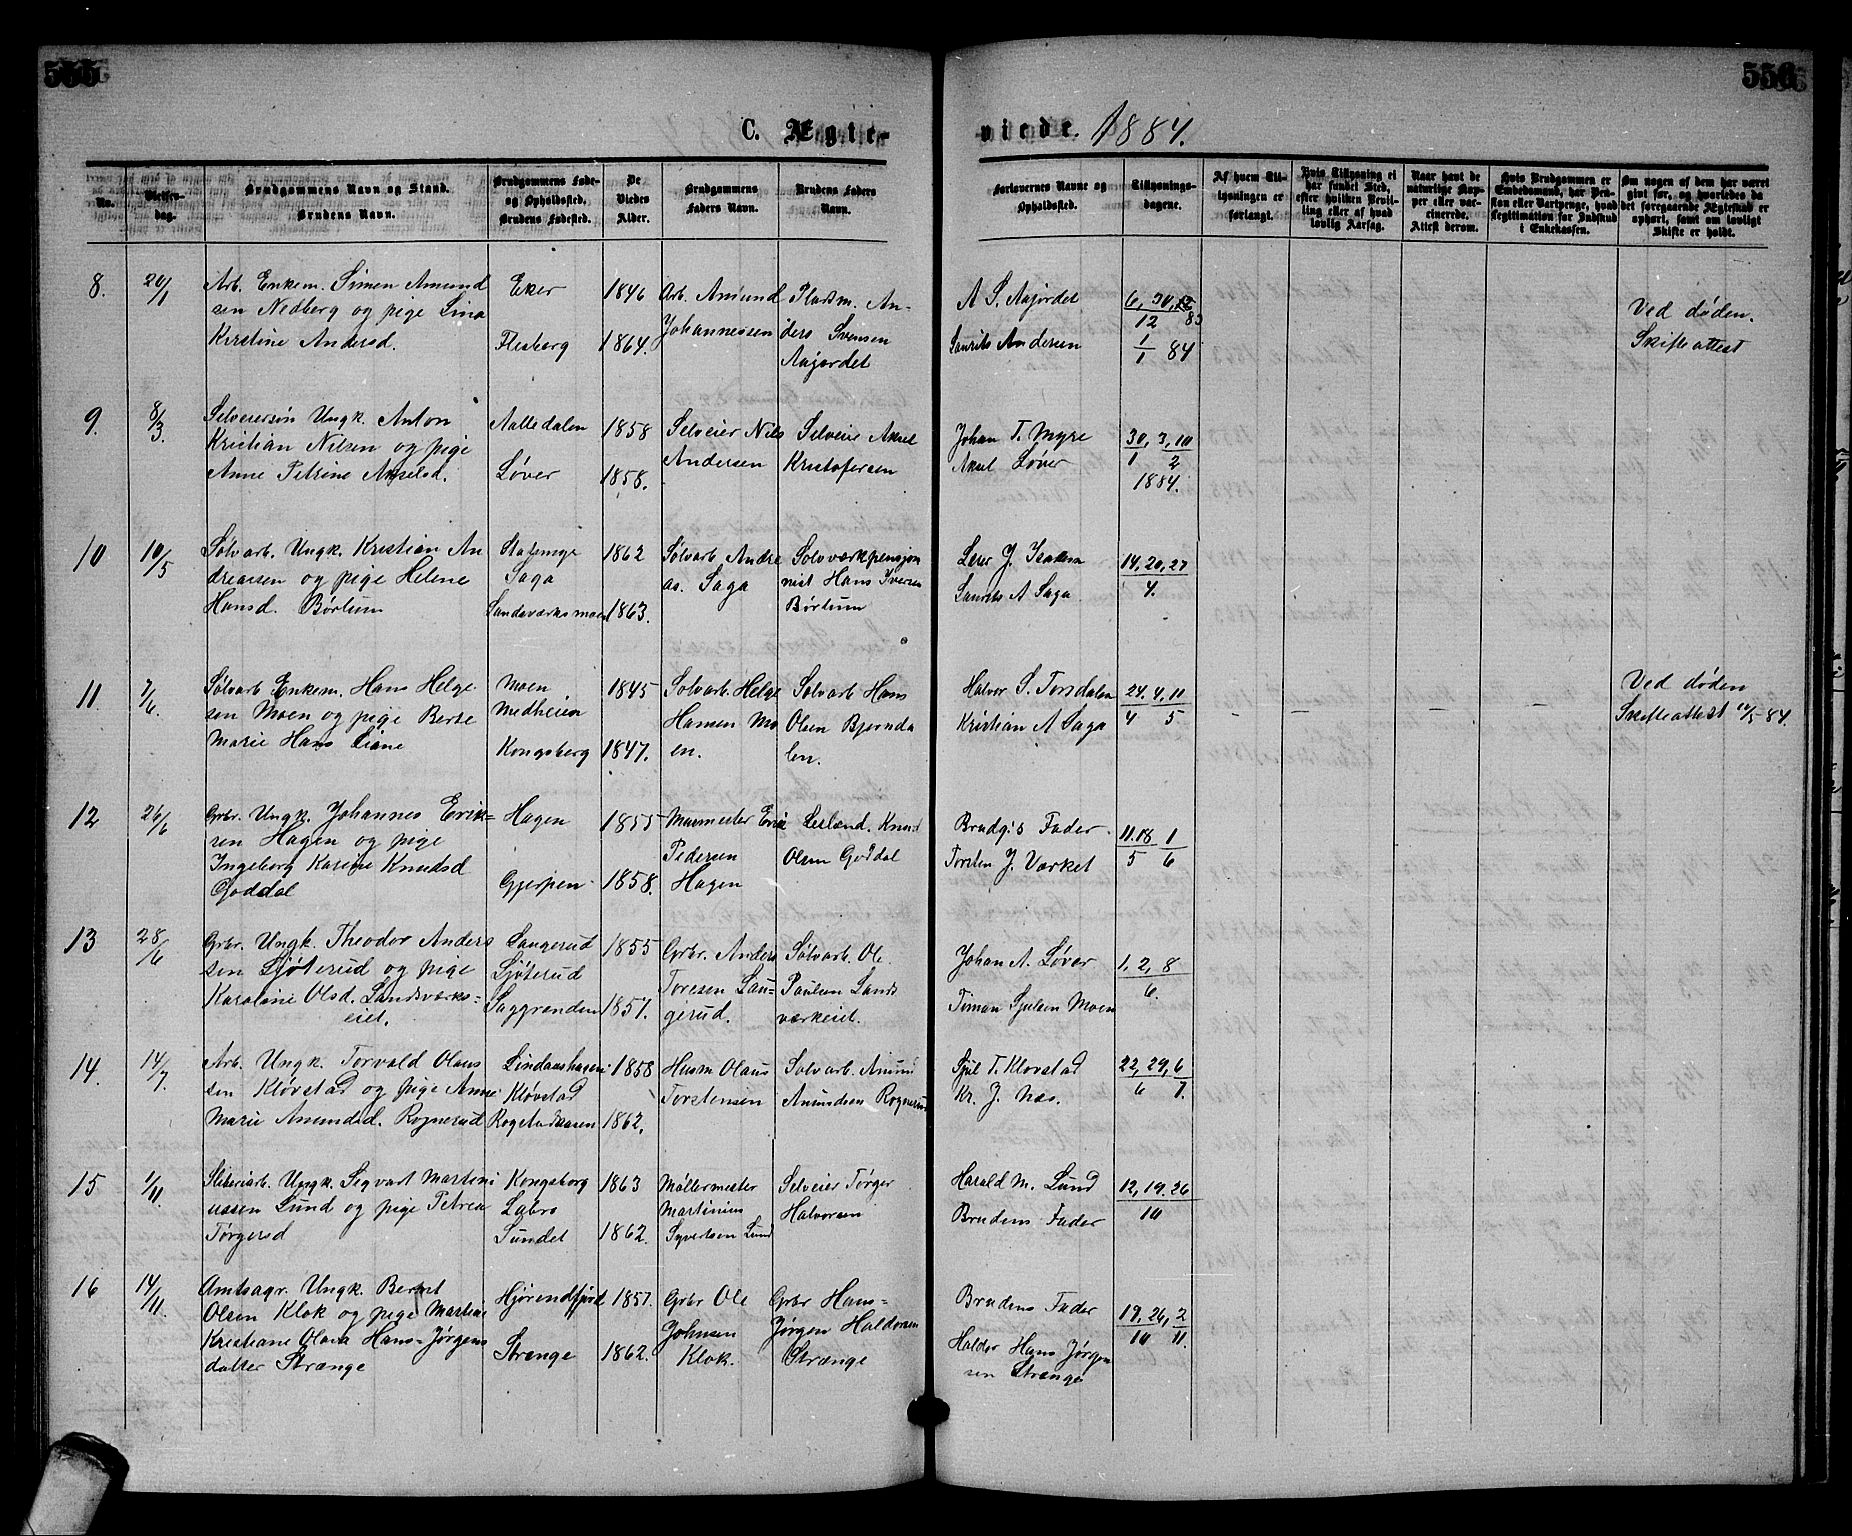 555
556
C. Ægte-
viede. 1884.
No.
Vielses-
dag.
Brudgommens Navn og Stand.
Brudens Navn.
Brudgommens Føde-
og Opholdssted.
Brudens Fødested.
De
Viedes
Alder.
Brudgommens
Faders Navn.
Brudens Faders
Navn.
Forlovernes Navne og
Opholdssted.
Tillysnings-
dagene.
Af hvem Til-
lysningen er
forlangt.
Hvis Tillysning ei
har fundet Sted,
efter hvilken Bevil-
ling eller af hvad
lovlig Aarsag.
Naar havt de
naturlige Kop-
per eller vac-
cinerede.
Attest derom.
Hvis Brudgommen er
Embedsmand, har Pen-
sion eller Vartpenge, hvad
Legitimation for Indskud
i Enkekassen.
Om nogen af dem har været
gift før, og hvorledes da
det foregaaende Ægteskab er
ophørt, samt om lovligt
Skifte er holdt.
8.
20/1
Arb. Enkem. Simen Amund
sen Nedberg og pige Lina
Kristine Andersd.
Eker
Flesberg
1846
1864.
Arb. Amund
Johannessen
Pladsm. An-
ders Svensen
Aajordet
A S. Aajordet
Laurits Andersen
6, 30,
12 83
1/1 84
Ved døden.
Skifteattest
9.
8/3.
Selveiersøn Ungk. Anton
Kristian Nilsen og pige
Anne Petrine Akselsd.
Aallsdalen
Løver
1858
1858.
Selveier Nils
Andersen
Selveier Aksel
Kristofersen
Johan T. Myre
Aksel Løver
30, 3, 10
1 2
1884.
10
10/5
Sølvarb. Ungk. Kristian An
dreassen og pige Helene
Hansd. Børtum
Saga
Sandsværksmoen
1862
1863.
Sølvarb. Andre
as. Saga
Sølvværkpensjon
nist Hans Iversen
Børtum
J. Isaksen
Laurits A Saga
14, 20, 27
4.
11.
7/6.
Sølvarb Enkem. Hans Helge
sen Moen og pige Berte
Marie Hans Liane
Moen
Medheien
Kongsberg
1845
1847.
Sølvarb. Helge
Hansen Mo
en.
Sølvarb Hans
Olsen Bjørnda
len.
Halvor S. Torsdalen
Kristian A Saga
24. 4, 11
4 5
Ved døden
Skifteattest 10/5-84.
12
26/6
Grbr. Ungk. Johannes Erik-
sen Hagen og pige
Ingeborg Karine Knudsd
Goddal
Hagen
Gjerpen
1855
1858.
Murmester Erik
Pedersen
Hagen
Leiland. Knud
Olsen Goddal
Brudg's Fader
Torsten J. Værket
11. 18 1
5 6
13
28/6
Grbr. Ungk. Theodor Anders
sen Sjøterud og pige
Karoline Olsd. Sandsværks=
eiet.
Laugerud
Sjøterud
Saggrenden
1855
1857.
Grbr. Anders
Toresen Lau-
gerud.
Sølvarb. Ole
Paulsen Sands
værkeiet.
Johan A. Løver
Timan Sjulsen Moen
1, 2, 8
6.
14.
14/7
Arb. Ungk. Torvald Olaus
sen Kløvstad og pige Anne
Marie Amundsd. Rognerud
Kløvstad
1858
1862.
Husm Olaus
Torstensen
Sølvarb. Amund
Amundsen Rognerud
Sjul T. Kløvstad
Kr. J. Næs.
22, 29, 6
6 7.
15
1/11
Sliberiarb. Ungk. Segvart Martini
ussen Lund og pige Petrea
Tørgersd
Kongsberg
Labro
Sundet
1863
1862.
Møllermester
Martinius
Syvertsen Lund
Selveier Tørger
Halvorsen
Harald M. Lund
Brudens Fader
12, 19. 26
10
16
14/11.
Amtsagr. Ungk. Bernt
Olsen Klok og pige Martine
Kristiane Olava Hans-Jørgens
datter Strænge
Hjørendfjord
Strænge
1857.
1862.
Grbr Ole
Johnsen
Klok.
Grbr Hans=
Jørgen Haldorsen
Strænge
Brudens Fader
Haldor Hans Jørgen
sen Strænge
19, 26, 2
10 11.